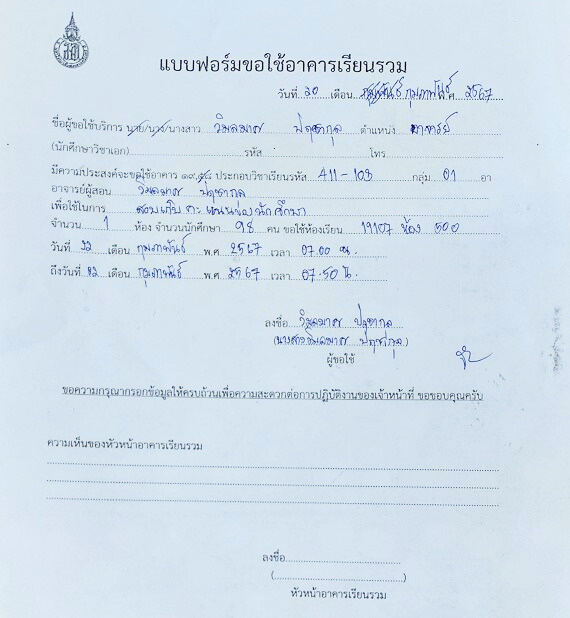 แบบฟอร์มขอใช้อาคารเรียนรวม
วันที่ 20 เดือน กุมภาพันธ์ พ.ศ. 2567
ชื่อผู้ขอใช้บริการ นาย/นาง/นางสาว วิมลมาศ ปฤชากุล ตำแหน่ง อาจารย์
(นักศึกษาวิชาเอก) รหัส โทร
มีความประสงค์จะขอใช้อาคาร ๑๙,๕๘ ประกอบวิชาเรียนรหัส 411-103 กลุ่ม 01 อา
อาจารย์ผู้สอน วิมลมาศ ปฤชากุล
เพื่อใช้ในการ สอบเก็บคะแนนของนักศึกษา
จำนวน 1 ห้อง จำนวนนักศึกษา 98 คน ขอใช้ห้องเรียน 19107 ห้อง 500
วันที่ 22 เดือน กุมภาพันธ์ พ.ศ. 2567 เวลา 07.00 น.
ถึงวันที่ 22 เดือน กุมภาพันธ์ พ.ศ. 2567 เวลา 07.50 น.
ลงชื่อ วิมลมาศ ปฤชากุล
(นางสาววิมลมาศ ปฤชากุล)
ผู้ขอใช้
ขอความกรุณากรอกข้อมูลให้ครบถ้วนเพื่อความสะดวกต่อการปฏิบัติงานของเจ้าหน้าที่ ขอขอบคุณครับ
ความเห็นของหัวหน้าอาคารเรียนรวม
ลงชื่อ
(                    )
หัวหน้าอาคารเรียนรวม